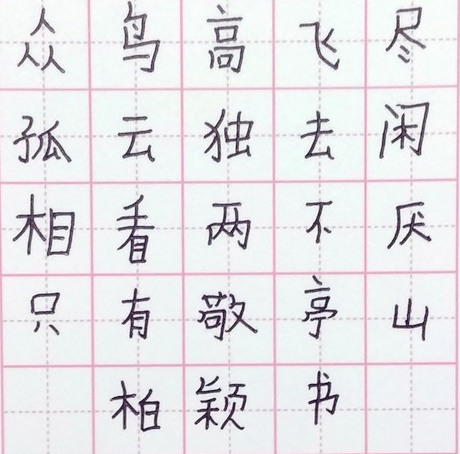 众鸟高飞尽
孤云独去闲
相看两不厌
只有敬亭山
柏颖书